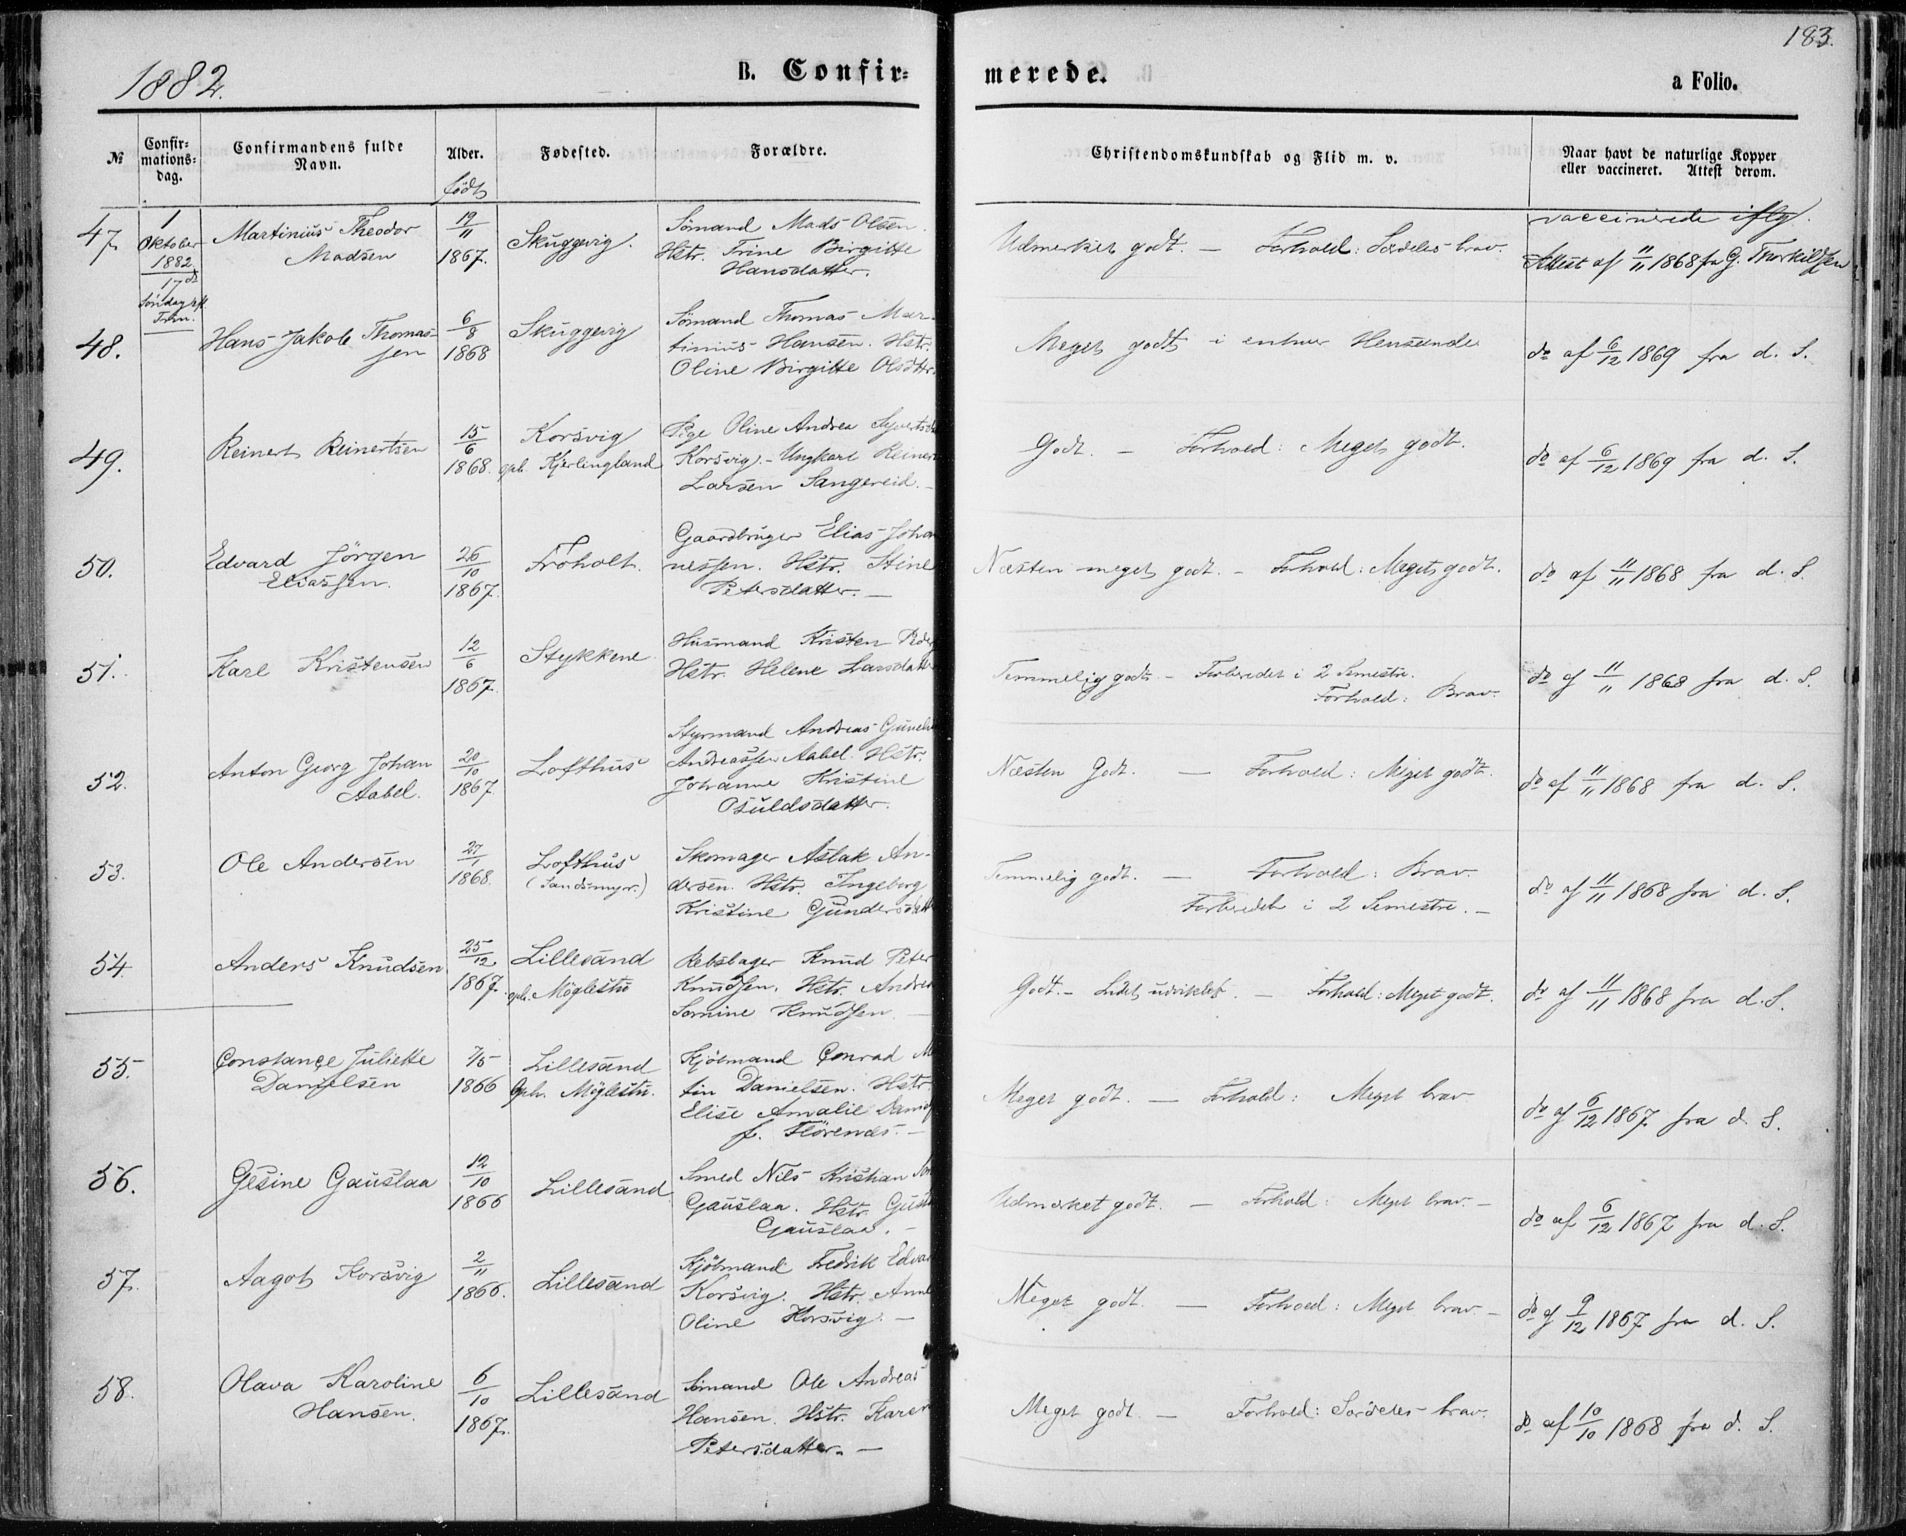 1882.
B. Confir=
merede.
183.
a Folio.
№
Confir=
mations=
dag.
Confirmandens fulde
Navn.
Alder.
født
Fødested.
Forældre.
Christendomskundskab og Flid m. v.
Naar havt de naturlige Kopper
eller vaccineret. Attest derom.
47.
1
Oktober
1882
17de
Søndag eft.
Trin.
Martinius Theodor
Madsen
19/11
1867.
Skuggevig.
Sømand Mads Olsen.
Hstr. Trine Birgitte
Hansdatter.
Udmerket godt. — Forhold: Særdeles brav.
vaccinerede iflg.
Attest af 11/11 1868 fra G. Thorkildsen
48.
Hans Jakob Thomas-
sen
6/8
1868
Skuggevig
Sømand Thomas Mar-
tinius Hansen. Hstr.
Oline Birgitte Olsdttr.
Meget godt i enhver Henseende
do af 6/12 1869 fra d. S.
49.
Reinert Reinertsen
15/6
1868.
Korsvig
oph. Kjerlingland
Pige Oline Andrea Syverts
Korsvig - Ungkarl Reinert
Larsen Sangereid. -
Godt. — Forhold: Meget godt.
do af 6/12 1869 fra d. S.
50.
Edvard Jörgen
Eliassen.
26/10
1867.
Froholt.
Gaardbruger Elias Johan
nessen. Hstr. Stine
Petersdatter. —
Næsten meget godt. - Forhold: Meget godt.
do af 11/11 1868 fra d. S.
51.
Karl Kristensen
12/6
1867.
Stykkene
Husmand Kristen
Hstr. Helene Larsdatt
Temmelig godt - Forberedet i 2 Semestre.
Forhold: Brav.
do af 11/11 1868 fra d. S.
52.
Anton Georg Johan
Aabel.
20/10
1867.
Lofthus
Styrmand Andreas
Andreassen Aabel. Hstr.
Johanne Kristine
Osuldsdatter.
Næsten Godt. — Forhold: Meget godt.
do af 11/11 1868 fra d. S.
53.
Ole Andersen
27/1
1868.
Lofthus
(Sandsmyr.)
Skomager Aslak An-
dersen. Hstr. Ingeborg
Kristine Gundersdatt
Temmelig godt. — Forhold: Brav.
Forberedet i 2 Semestre. -
do af 11/11 1868 fra d. S.
54.
Anders Knudsen
25/12
1867.
Lillesand
oph. Möglestu
Rebslager Knud Peter
Knudsen. Hstr. Andrea
Somine Knudsen. —
Godt. - Lidet udviklet. — Forhold: Meget godt.
do af 11/11 1868 fra d. S.
55.
Constance Juliette
Danielsen
7/5
1866
Lillesand
Oph. Möglestu.
Kjöbmand Conrad M
tin Danielsen. Hstr.
Elise Amalie Daniel
f. Flörenäs. —
Meget godt. — Forhold: Meget brav
do af 6/12 1867 fra d. S.
56.
Gesine Gauslaa
12/10
1866
Lillesand
Smed Nils Kristian
Gauslaa. Hstr.
Gauslaa. -
Udmerket godt. — Forhold: Meget brav. -
do af 6/12 1867 fra d. S.
57.
Aagot Korsvig
2/11
1866.
Lillesand
Kjöbmand Fredrik Edva
Korsvig. Hstr. Anne
Oline Korsvig. —
Meget godt. — Forhold: Meget brav. -
do af 9/12 1867 fra d. S.
58.
Olava Karoline
Hansen.
6/10
1867.
Lillesand
Sømand Ole Andreas
Hansen. Hstr. Karen
Petersdatter. —
Meget godt. — Forhold: Særdeles brav.
do af 10/10 1868 fra d. S.